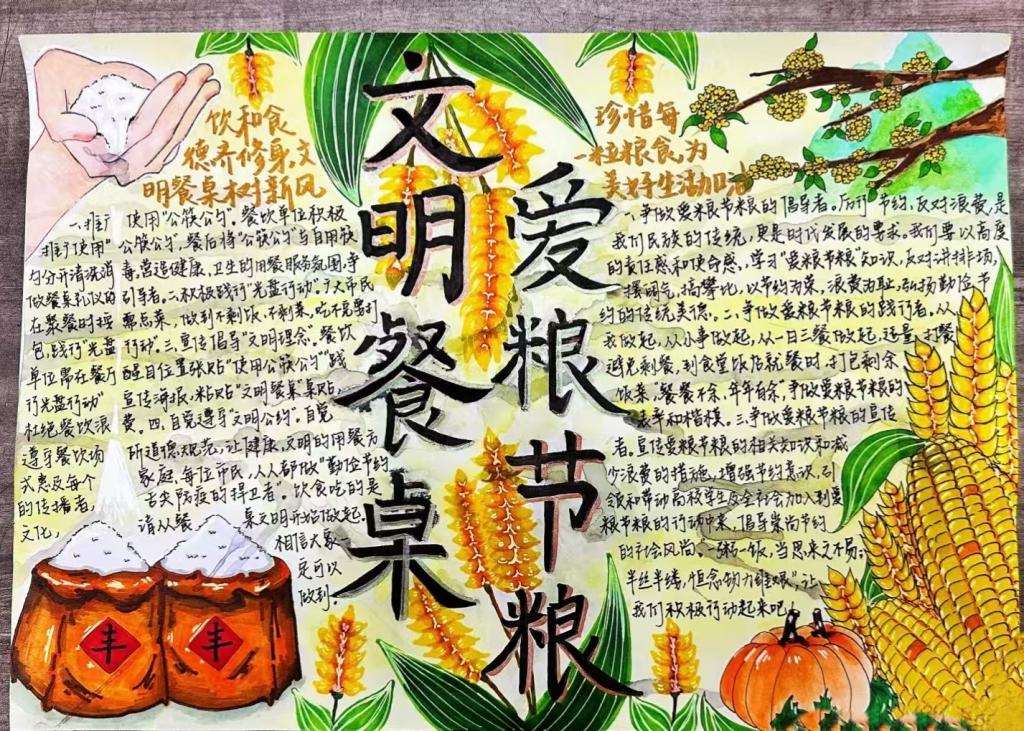 文明餐桌
爱粮节粮
饮和食
德齐修身,文
明餐桌树新风
一、推行 使用“公筷公勺”。餐饮单位积极
推行使用“公筷公勺”,餐后将“公筷公勺”与自用筷
勺分开清洗消毒,营造健康、卫生的用餐服务氛围,争
做餐桌礼仪的引导者。二、积极践行“光盘行动”。广大市民
在聚餐时按需点菜,做到不剩饭、不剩菜,吃不完要打
包,践行“光盘行动”。三、宣传倡导“文明理念”。餐饮
单位需在餐厅醒目位置张贴“使用公筷公勺”“践
行光盘行动”宣传海报,粘贴“文明餐桌”桌贴,
杜绝餐饮浪费。四、自觉遵守“文明公约”。自觉
遵守餐饮场所道德规范,让健康、文明的用餐方
式惠及每个家庭,每位市民,人人都做“勤俭节约
的传播者,舌尖防疫的捍卫者”。饮食吃的是
文化,请从餐桌文明开始做起。
相信大家一
定可以
做到。
珍惜每
一粒粮食,为
美好生活加油
一、争做爱粮节粮的倡导者。厉行节约,反对浪费,是
我们民族的传统,更是时代发展的要求。我们要以高度
的责任感和使命感,学习“爱粮节粮”知识,反对讲排场、
摆阔气,搞攀比,以节约为荣,浪费为耻,弘扬勤俭节
约的传统美德。二、争做爱粮节粮的践行者。从
我做起,从小事做起,从一日三餐做起,适量打餐
避免剩餐,到食堂饭店就餐时,打包剩余
饭菜,“餐餐不余,年年有余”争做爱粮节粮的
表率和楷模。三、争做爱粮节粮的宣传
者。宣传爱粮节粮的相关知识和减
少浪费的措施,增强节约意识,引
领和带动高校学生及全社会加入到爱
粮节粮的行动中来,倡导崇尚节约
的社会风尚。一粥一饭,当思来之不易;
半丝半缕,恒念物力维艰”,让
我们积极行动起来吧。
丰
丰